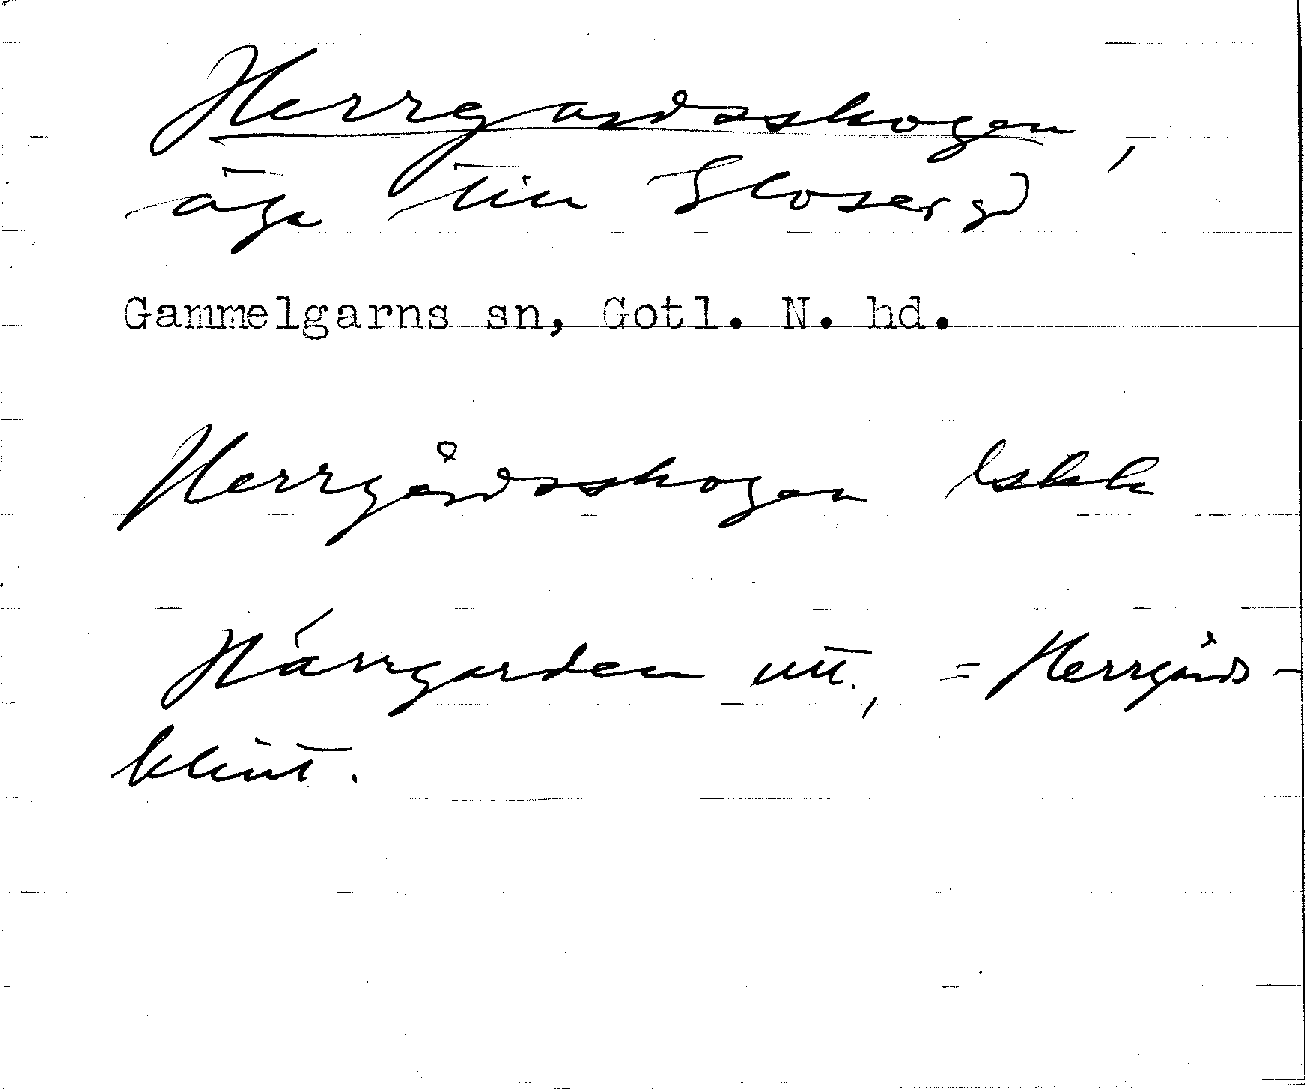 Herrgardsskogen,
äga till Glose gd
Gammelgarns sn, Gotl. N. hd.
Herrgårdsskogen lskk
Härrgarden utt., = Herrgårds-
klint.